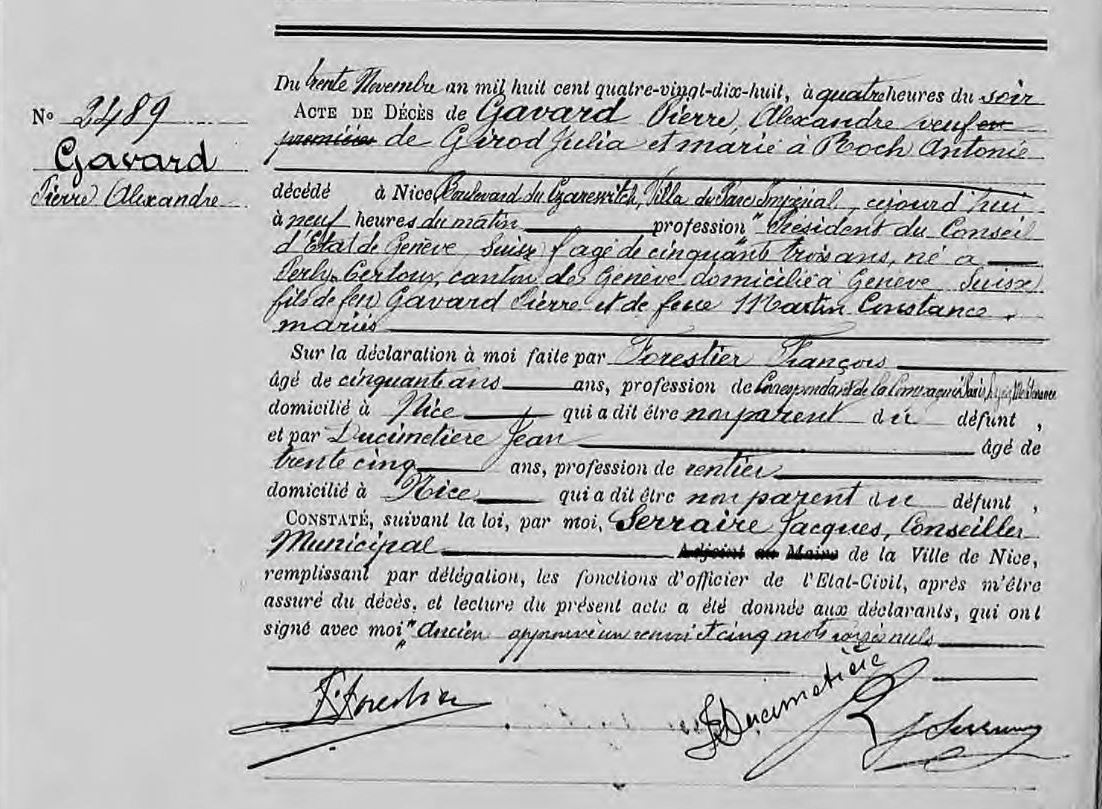 Du trente Novembre an mil huit cent quatre-vingt-dix-huit, à quatre heures du soir
N° 2489
Gavard
Pierre Alexandre
ACTE DE DÉCÈS de Gavard Pierre, Alexandre veuf en
première de Girod Julia et marié à Roch Antonie
décédé à Nice, Boulevard du Czarewitch, Villa du Parc Impérial, cejourd'hui
à neuf heures du matin profession " Président du Conseil
d'Etat de Genève Suisse âgé de cinquante trois ans, né à
Perly-Certoux, canton de Genève domicilié à Genève Suisse
fils de feu Gavard Pierre et de feue Martin Constance.
mariés
Sur la déclaration à moi faite par Forestier François
âgé de cinquante ans ans, profession de Correspondant de la Compagnie Paris Lyon Méditerranée
domicilié à Nice qui a dit être non parent du défunt,
et par Ducimetière Jean âgé de
trente cinq ans, profession de rentier
domicilié à Nice qui a dit être non parent du défunt,
CONSTATÉ, suivant la loi, par moi, Serraire Jacques, Conseiller
Municipal Adjoint au Maire de la Ville de Nice,
remplissant par délégation, les fonctions d'officier de l'Etat-Civil, après m'être
assuré du décès, et lecture du présent acte a été donnée aux déclarants, qui ont
signé avec moi " Ancien " approuvé un renvoi et cinq mots rayés nuls
F. Forestier
J. Ducimetière
J Serraire